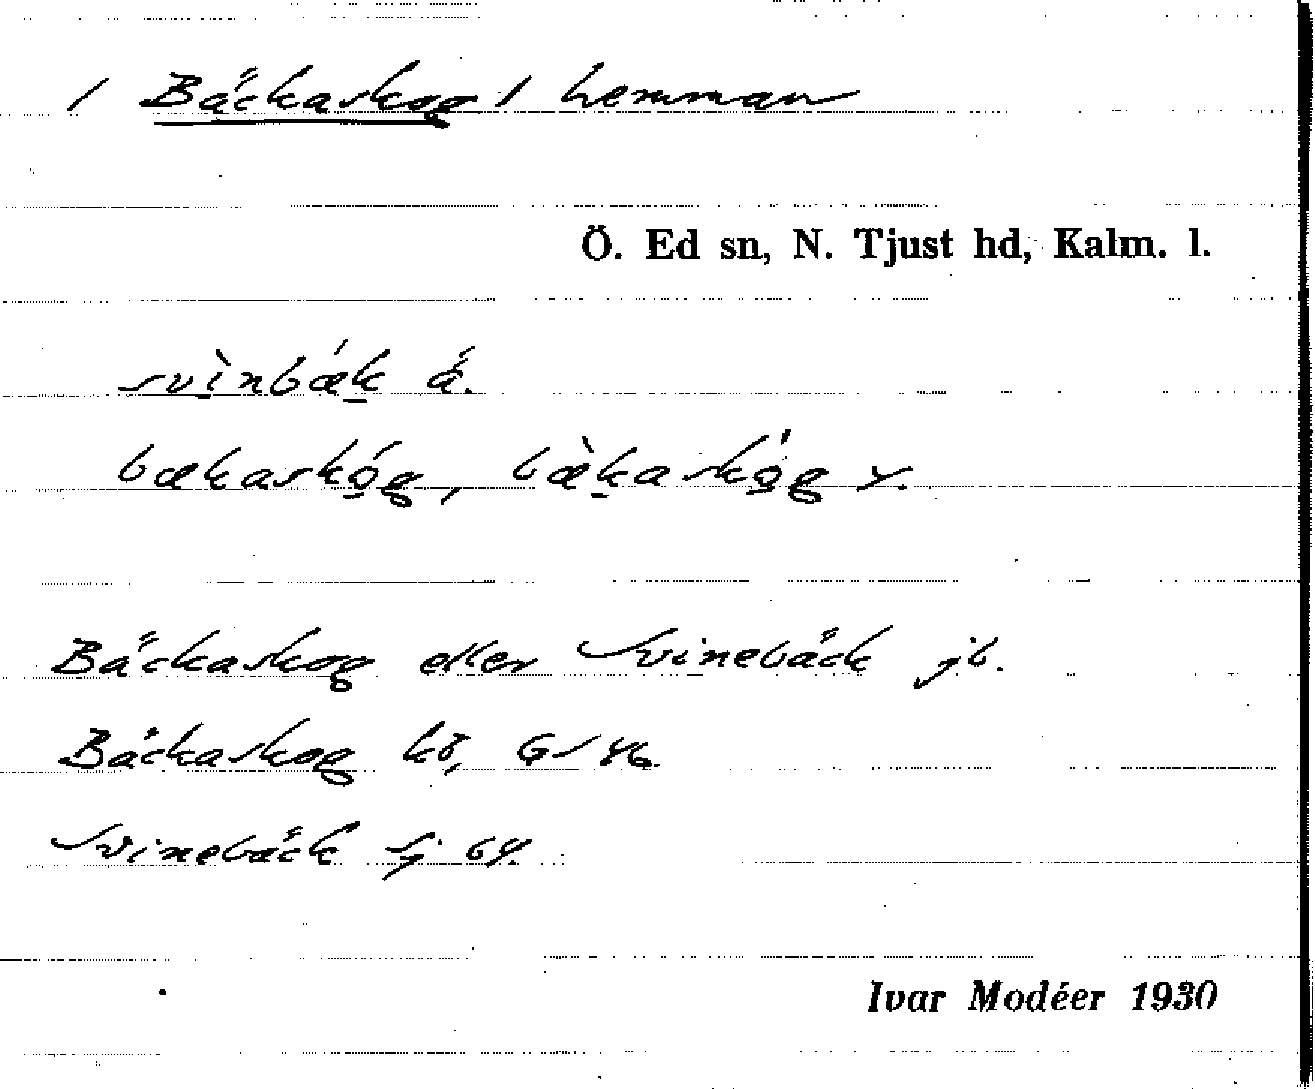 / Bäckaskog / hemman
Ö. Ed sn, N. Tjust hd, Kalm. l.
svìnbǽk ä.
bækaskóg, bæ̀kaskóg y.
Bäckaskog eller Svinebäck jb.
Bäckaskog kb, GS 46.
Svinebäck Sj 64.
Ivar Modéer 1930